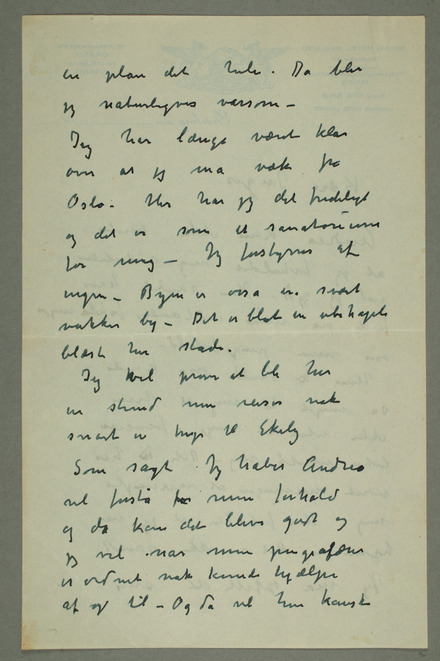 en plan det hele. Da blir
jeg naturligvis varsom –
Jeg har længe været klar
over at jeg må væk fra
Oslo – Her har jeg det fredeligt
og det er som et sanatorium
for meg – Jeg forstyrres af
ingen – Byen er osså en svært
vakker by – Det er blot en ubehagelig
blæst her stadi.
Jeg vil prøve at bli her
en stund men reiser nok
snart en tur til Ekely
Som sagt Jeg håber Andrea
vil forstå mine forhold
og da kan det blive godt og
jeg vil når mine pengeaffærer
er ordnet nok kunde hjælpe
af og til – Og da vil hun kanske